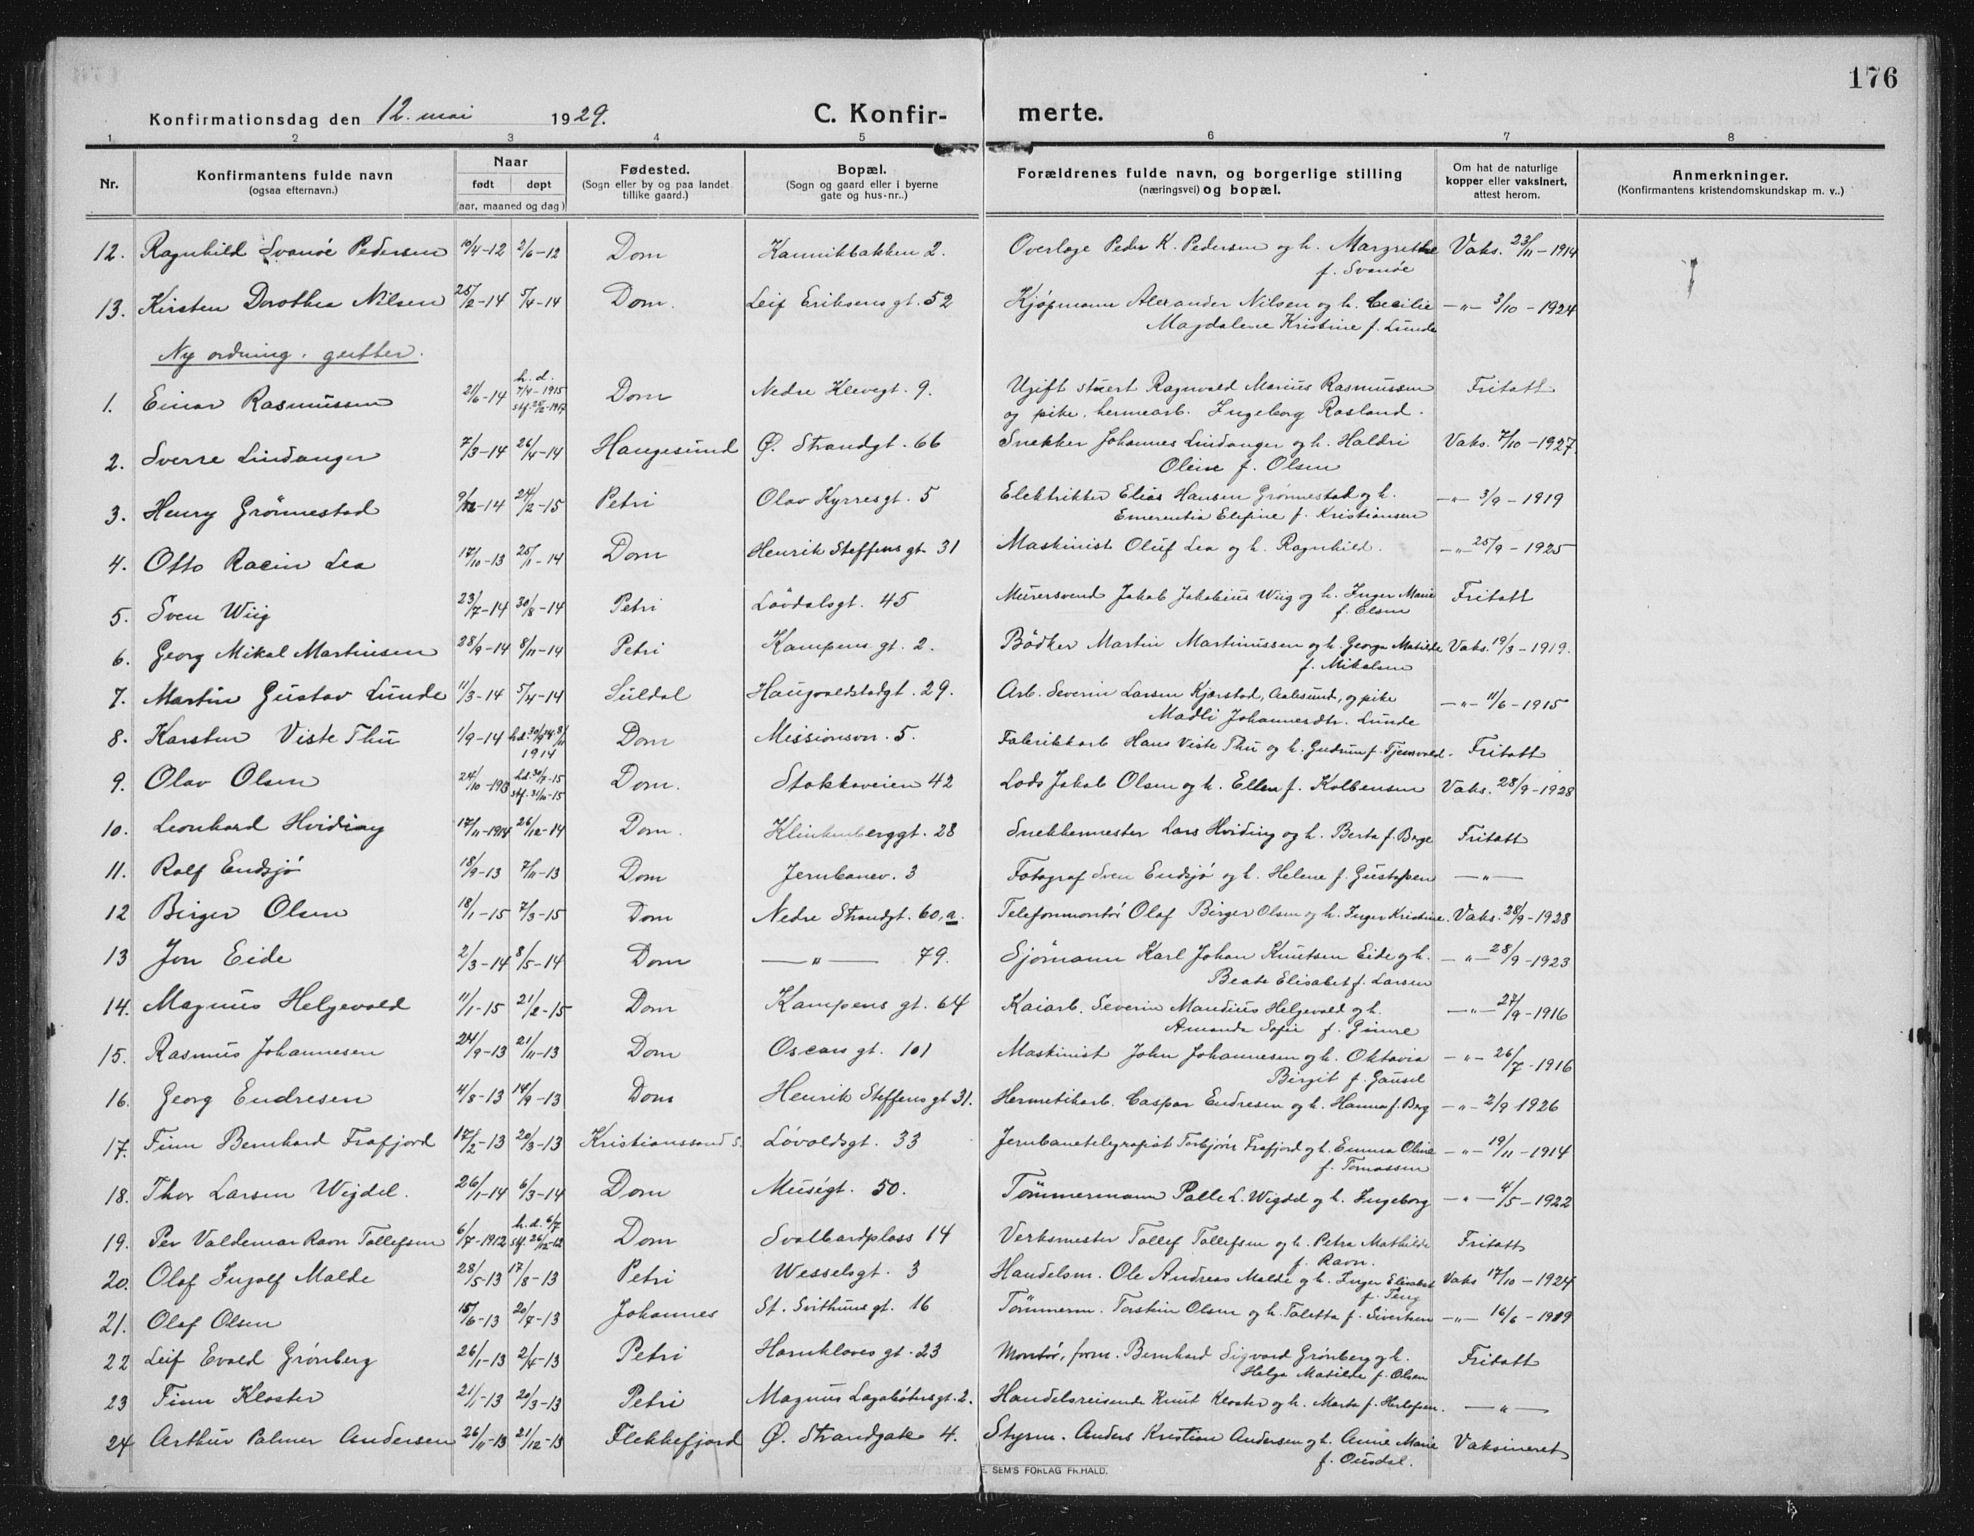 176
Konfirmationsdag den 12. mai 1929. C. Konfirmerte.
1 2 3 4 5 6 7 8
Nr. Konfirmantens fulde navn (ogsaa efternavn.) Naar født døpt (aar, maaned og dag) Fødested. (Sogn eller by og paa landet tillike gaard.) Bopæl. (Sogn og gaard eller i byerne gate og hus-nr..) Forældrenes fulde navn, og borgerlige stilling (næringsvei) og bopæl. Om hat de naturlige kopper eller vaksinert, attest herom. Anmerkninger. (Konfirmantens kristendomskundskap m. v..)
12. Ragnhild Svanöe Pedersen 10/4-12 2/6-12 Dom Kannikbakken 2. Overlæge Peder K. Pedersen og h. Margrethe Vaks. 23/11-1914
f. Svanöe
13. Kirsten Dorothea Nilsen 25/2-14 5/4-14 Dom. Leif Eriksens gt. 52 Kjøpmann Alexander Nilsen og h. Cecilie -"- 3/10-1924
Magdalene Kristine f. Lunde
Ny ordning. gutter.
1. Einar Rasmussen 21/6-14 h. d. 7/4-1915 Dom Nedre Klevegt. 9. Ugift stuert Ragnvald Marius Rasmussen Fritatt
og pike, hermearb. Ingeborg Rosland.
2. Sverre Lindanger 7/3-14 26/4-14 Haugesund Ø. Strandgt. 66 Snekker Johannes Lindanger og h. Haldri Vaks. 7/10-1927
Oline f. Olsen
3. Henry Grönnestad 9/12-14 24/2-15 Petri Olav Kyrresgt. 5 Elektriker Elias Hansen Grönnestad og h. -"- 3/9-1919
Emerentia Elefine f. Kristiansen
4. Otto Racin Lea 17/10-13 25/1-14 Dom Henrik Steffens gt. 31 Maskinist Oluf Lea og h. Ragnhild. -"- 25/9-1925
5. Sven Wiig 23/7-14 30/8-14 Petri Lövdalsgt. 45 Murersvend Jakob Jakobius Wiig og h. Inger Marie Fritatt
f. Olsen
6. Georg Mikal Martinsen 28/9-14 8/11-14 Petri Kampens gt. 2. Bödker Martin Martinussen og h. Georga Matilde Vaks. 19/3-1919.
f. Mikalsen
7. Martin Gustav Lunde 11/3-14 5/4-14 Suldal Haugvaldstadgt. 29. Arb. Severin Larsen Kjærstad, Aalesund, og pike -"- 11/6-1915
Madli Johannesdtr. Lunde
8. Karsten Viste Thu 1/9-14 1914 Dom Missionsvn. 5. Fabrikkarb Hans Viste Thu og h. Gudrun f. Tjensvold. Fritatt
9. Olav Olsen 24/10-1913 h.d. 30/7-15 stf. 31/10-15 Dom. Stokkaveien 42 Lods Jakob Olsen og h. Ellen f. Kolbensen Vaks. 28/9-1928
10. Leonhard Hviding 17/11-1914 26/12-14 Dom. Klinkenberggt. 28 Snekkermester Lars Hviding og h. Berta f. Berge Fritatt
11. Rolf Endsjö 18/9-13 7/11-13 Dom Jernbanev. 3 Fotograf Sven Endsjö og h. Helene f. Gustafsen -"-
12 Birger Olsen 18/1-15 7/3-15 Dom Nedre Strandgt. 60, a. Telefonmontör Olaf Birger Olsen og h. Inger Kristine. Vaks. 28/9-1928
13 Jon Eide 2/3-14 8/5-14 Dom -"- 79. Sjömann Karl Johan Knutsen Eide og h. -"- 28/9-1923
Beate Elisabet f. Larsen
14. Magnus Helgevold 11/1-15 21/2-15 Dom Kampens gt. 64 Kaiarb. Severin Mandius Helgevold og h. -"- 27/9-1916
Amanda Sofie f. Gimre
15. Rasmus Johannesen 24/9-13 21/11-13 Dom Oscars gt. 101 Maskinist John Johannesen og h. Oktavia -"- 26/7-1916
Birgit f. Gausel
16. Georg Endresen 4/8-13 14/9-13 Dom Henrik Steffens gt 31. Hermetikarb. Caspar Endresen og h. Hanna f. Berg -"- 2/9 1926
17. Finn Bernhard Frafjord 17/2-13 20/3-13 Kristianssand S. Lövoldsgt. 33 Jernbanetelegrafist Torbjörn Frafjord og h. Emma Oline -"- 19/11-1914
f. Tomassen
18. Thor Larsen Wigdel. 26/1-14 6/3-14 Dom Muségt. 50. Tömmermann Palle L. Wigdel og h. Ingeborg -"- 4/5-1922
19. Per Valdemar Ravn Tollefsen 6/7-1912 h. d. 6/7 stf. 26/12-12 Dom Svalbardplass 14 Verksmester Tollef Tollefsen og h. Petra Mathilde Fritatt
f. Ravn.
20. Olaf Ingolf Malde 28/5-13 17/8-13 Petri Wesselsgt. 3 Handelsm. Ole Andreas Malde og h. Inger Elisabet Vaks 17/10-1924
f. Teng
21. Olaf Olsen 15/6-13 20/7-13 Johannes St. Svithuns gt. 16 Tömmerm. Torskin Olsen og h. Taletta f. Sivertsen -"- 16/6-1919
22 Leif Evald Grönberg 26/1-13 2/4-13 Petri Harnklovs gt. 23 Montör, form. Bernhard Sigvard Grönberg og h. Fritatt
Helga Matilde f. Olsen
23 Finn Kloster 21/1-13 20/3-13 Petri Magnus Lagabötersgt. 2. Handelsreisende Knut Kloster og h. Marta f. Herlofsen. -"-
24. Arthur Palmer Andersen 26/11-13 21/12-13 Flekkefjord Ø. Strandgate 4. Styrm. Anders Kristian Andersen og h. Anne Marie Vaksineret
f. Ousdal.
E. SEM'S FORLAG FR.HALD.